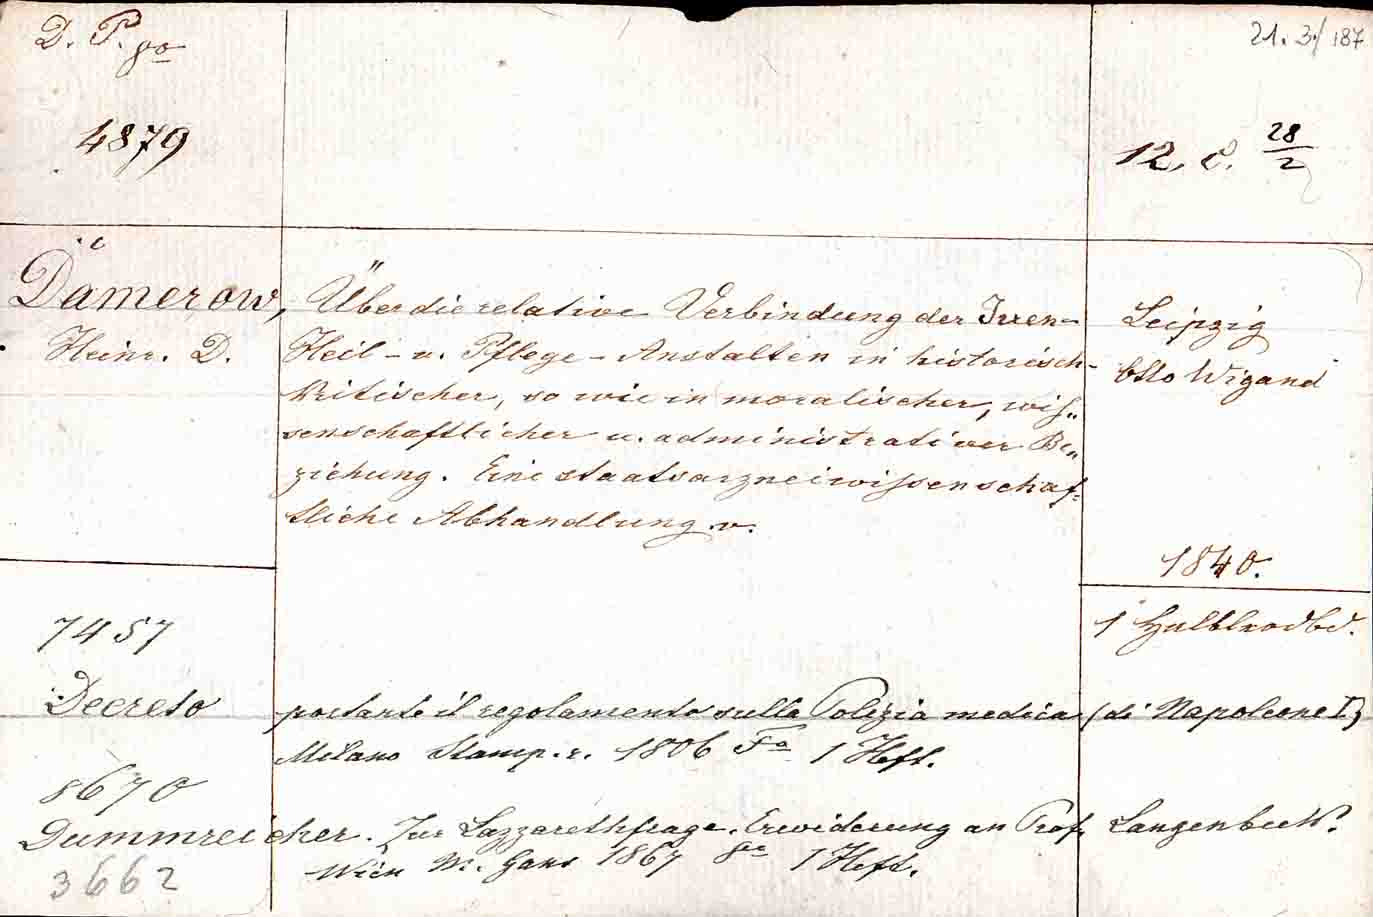 D. P. 8o
21. 3./187
4879
12. C. 28/2
Dämerow,
Heinr. D.
Über die relative Verbindung der Irren-
Heil- u. Pflege-Anstalten in historisch-
kritischer, so wie in moralischer, wis-
senschaftlicher u. administrativer Be-
ziehung. Eine staatsarzneiwissenschaf-
tliche Abhandlung v.
Leipzig
Otto Wigand
1840.
1 Halblwdbd.
7457
Decreto portante il regolamento sulla Polizia medica (di Napoleone I)
Milano Stamp. r. 1806 Fo 1 Heft.
8670
Dummreicher. Zur Lazzarethfrage. Erwiderung an Prof. Langenbeck.
Wien 1867 8o 1 Heft.
3662